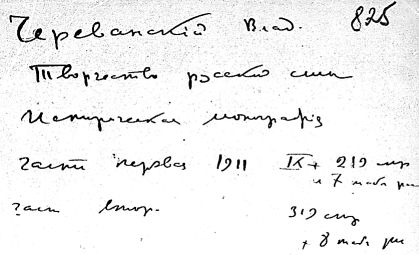 Череванскій Влад. 825
Творчество русской мысли
Историческая монографія
часть первая 1911 IX + 219 стр
и 7 табл рис
част втор. 319 стр
+ 8 табл рис